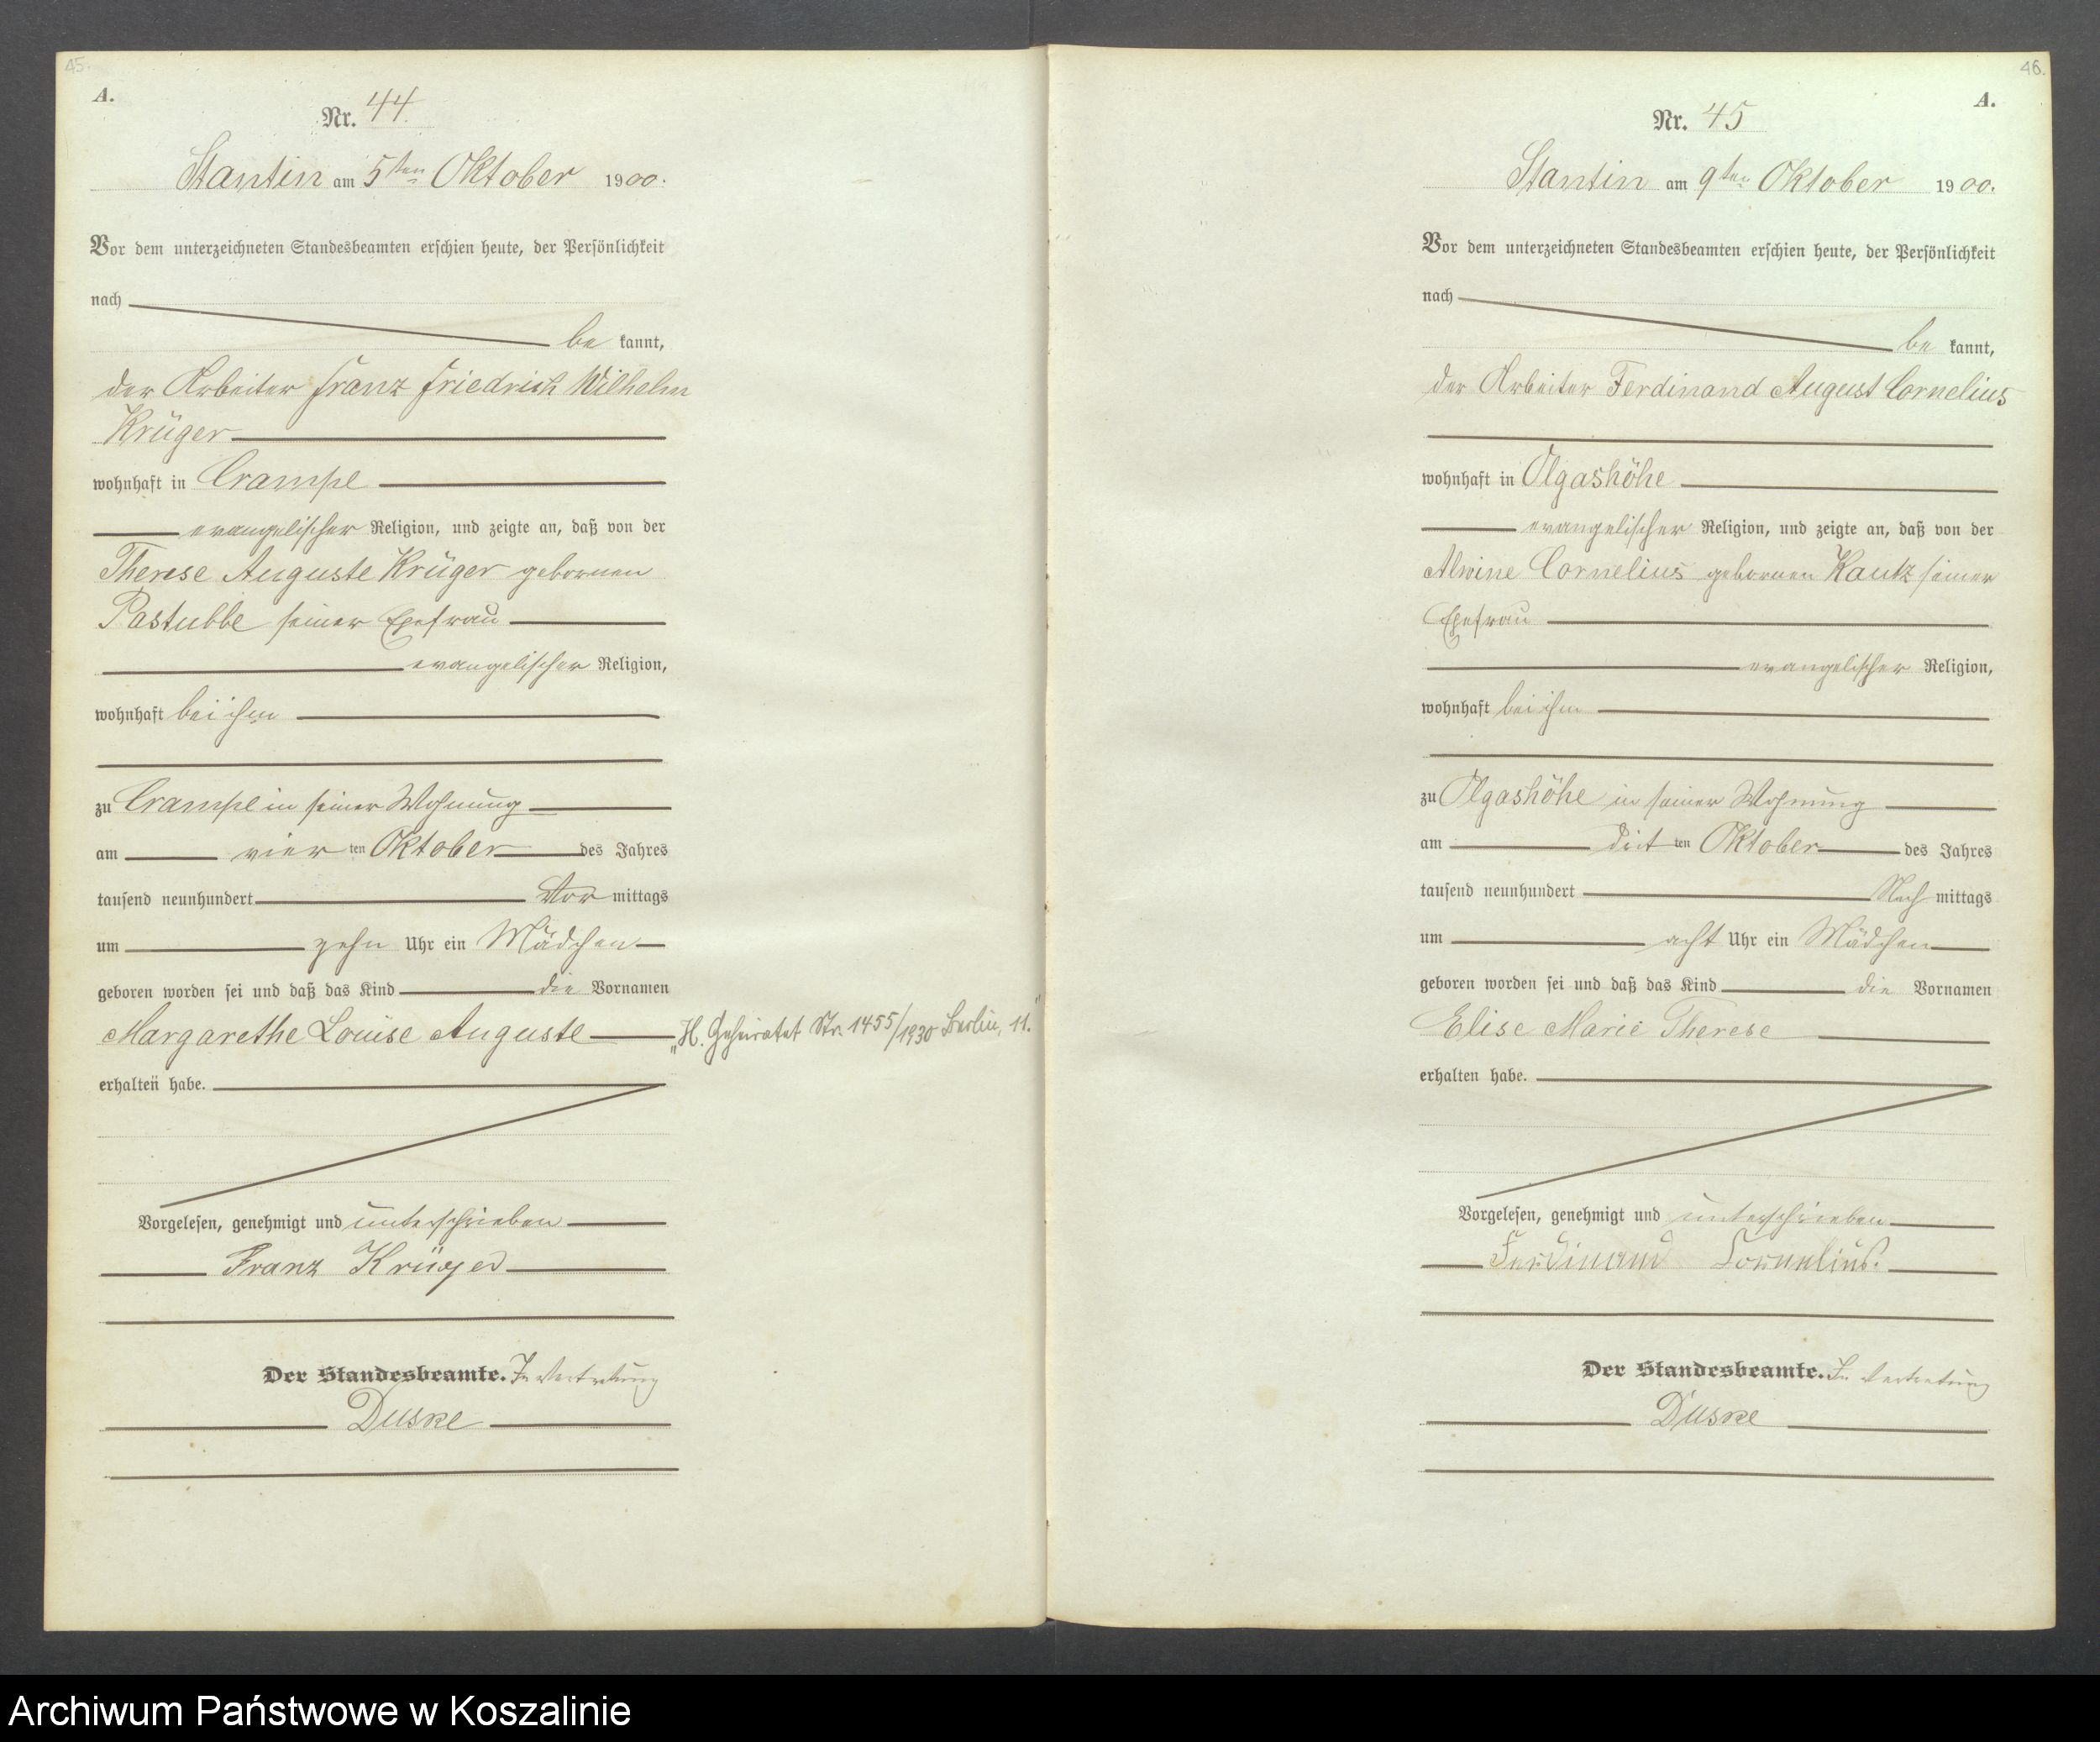 45.
A.
Nr. 44.
Stantin am 5ten Oktober 1900.
Vor dem unterzeichneten Standesbeamten erschien heute, der Persönlichkeit
nach
be kannt,
der Arbeiter Franz Friedrich Wilhelm
Krüger
wohnhaft in Crampe
evangelischer Religion, und zeigte an, daß von der
Therese Auguste Krüger geborenen
Pastubbe seiner Ehefrau
evangelischer Religion,
wohnhaft bei ihm
zu Crampe in seiner Wohnung
am vier ten Oktober des Jahres
tausend neunhundert Vor mittags
um zehn Uhr ein Mädchen
geboren worden sei und daß das Kind die Vornamen
Margarethe Louise Auguste
"H. Geheiratet Nr. 1455/1930 Berlin, 11."
erhalten habe.
Vorgelesen, genehmigt und unterschrieben
Franz Krüger
Der Standesbeamte. In Vertretung
Duske
46.
A.
Nr. 45
Stantin am 9ten Oktober 1900.
Vor dem unterzeichneten Standesbeamten erschien heute, der Persönlichkeit
nach
be kannt,
der Arbeiter Ferdinand August Cornelius
wohnhaft in Olgashöhe
evangelischer Religion, und zeigte an, daß von der
Alwine Cornelius geborenen Kautz seiner
Ehefrau
evangelischer Religion,
wohnhaft bei ihm
zu Olgashöhe in seiner Wohnung
am drit ten Oktober des Jahres
tausend neunhundert Nach mittags
um acht Uhr ein Mädchen
geboren worden sei und daß das Kind die Vornamen
Elise Marie Therese
erhalten habe.
Vorgelesen, genehmigt und unterschrieben
Ferdinand Cornelius.
Der Standesbeamte. In Vertretung
Duske
Archiwum Państwowe w Koszalinie